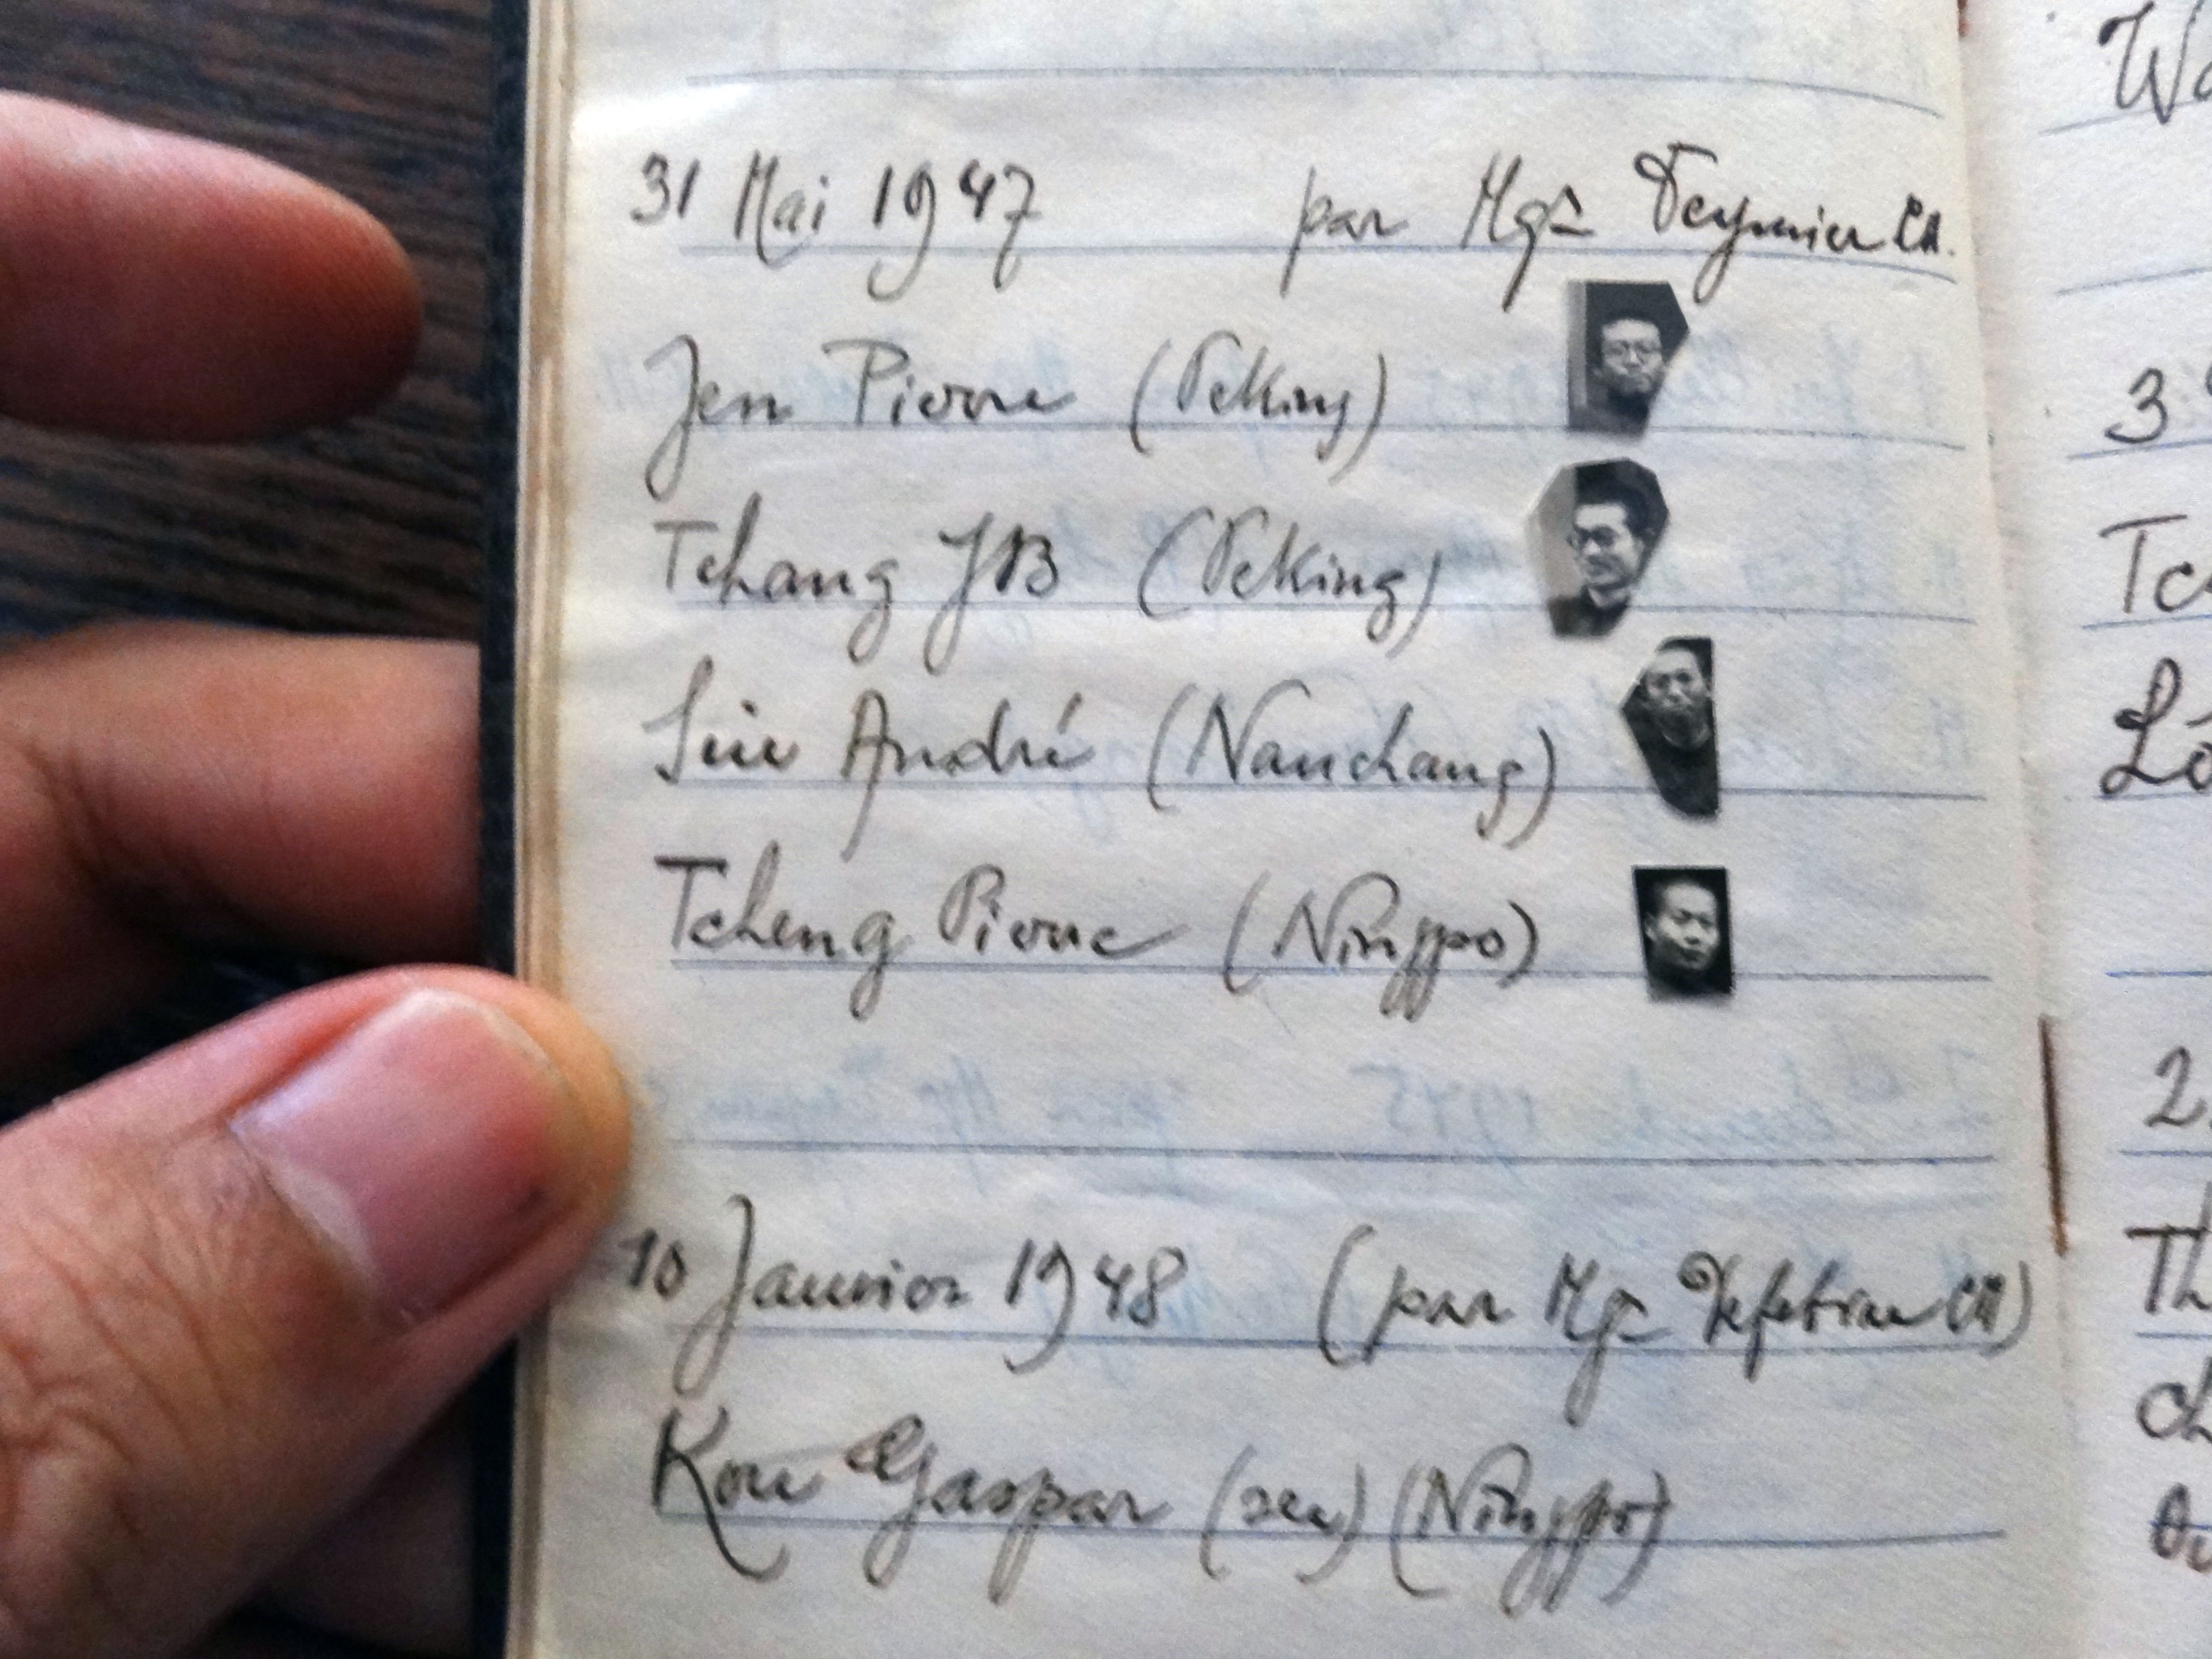 31 Mai 1947 par Mgr Deymier CM.
Jen Pierre (Peking)
Tchang JB (Peking)
Siu André (Nanchang)
Tcheng Pierre (Ningpo)
10 Janvier 1948 (par Mgr Defebvre CM)
Kou Gaspar (sec) (Ningpo)
Wa
3
Tc
Lo
2
Th
ch